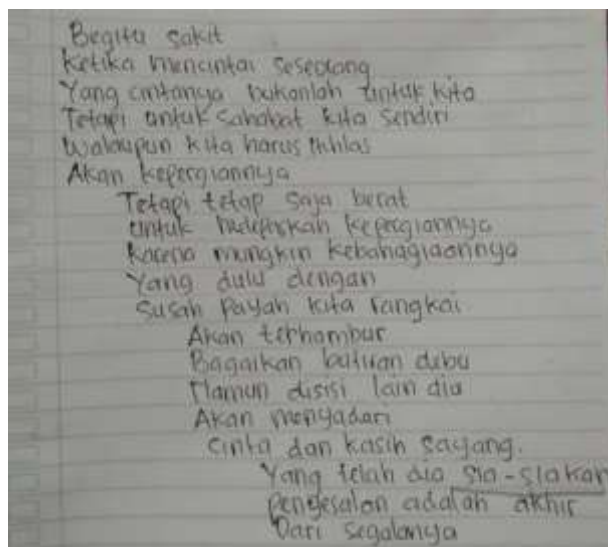 Begitu sakit
Ketika mencintai seseorang
Yang cintanya bukanlah untuk kita
Tetapi untuk sahabat kita sendiri
Walaupun kita harus ikhlas
Akan kepergiannya
Tetapi tetap saja berat
untuk kepergiannya
Karena mungkin kebahagiaannya
Yang dulu dengan
Susah payah kita rangkai
Akan terhambur
Bagaikan debu
Namun disisi lain dia
Akan menyadari
Cinta dan kasih sayang.
Yang telah dia sia-siakan
pengesalan adalah akhir
Dari segalanya